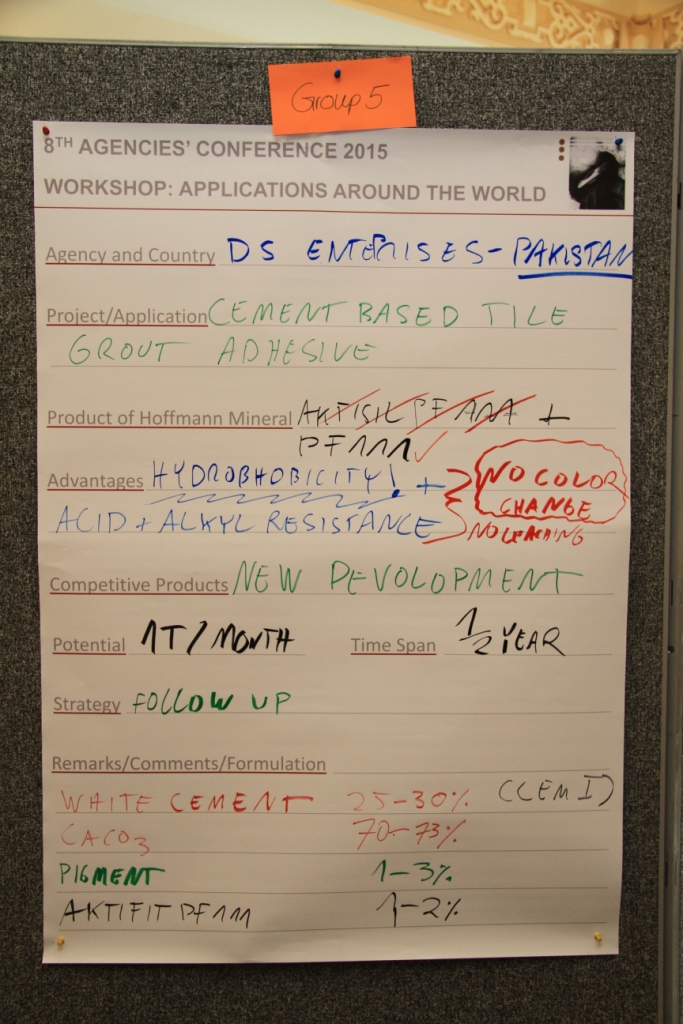 Group 5
8TH AGENCIES' CONFERENCE 2015
WORKSHOP: APPLICATIONS AROUND THE WORLD
Agency and Country DS ENTERISES - PAKISTAN
Project/Application CEMENT BASED TILE
GROUT ADHESIVE
Product of Hoffmann Mineral AKTISIL PF +
PF
Advantages HYDROBHOBICITY! + NO COLOR
CHANGE
ACID + ALKYL RESISTANCE NO LEACHING
Competitive Products NEW DEVOLOPMENT
Potential 1T/MONTH Time Span 1/2 YEAR
Strategy FOLLOW UP
Remarks/Comments/Formulation
WHITE CEMENT 25-30% (CEM I)
CACO3 70-73%
PIGMENT 1-3%
AKTIFIT PF 1-2%